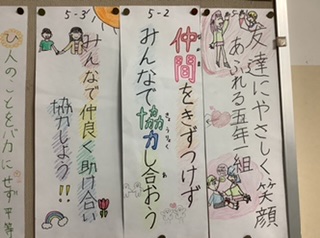 友達にやさしく笑顔
あふれる五年一組
5-2
仲間をきずつけず
みんなで協力し合おう
5-3
みんなで仲良く助け合い
協力しよう!!
人のことをバカにせず平等